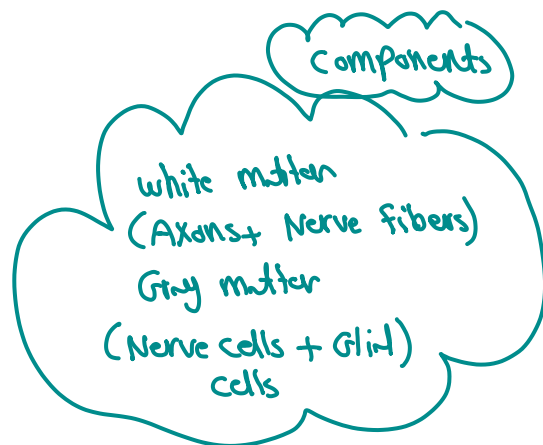 components
white matter
(Axons+ Nerve fibers)
Gray matter
(Nerve cells + Glial)
cells